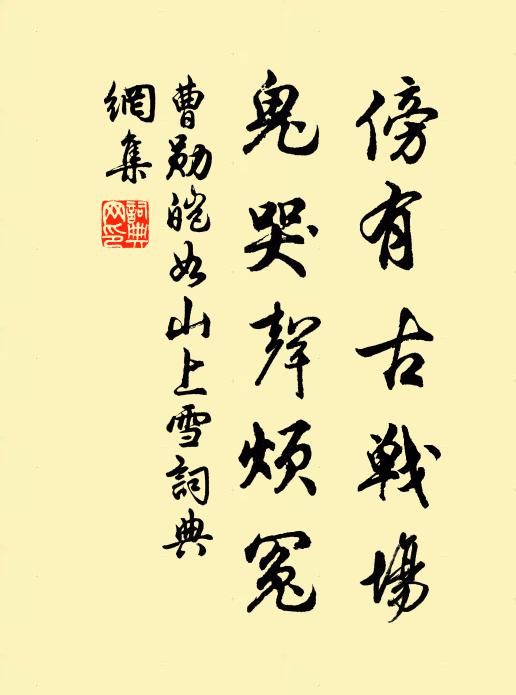 傍有古戰場
鬼哭聲煩冤
曹勛皚如山上雪詞典
網集
詞典
网印